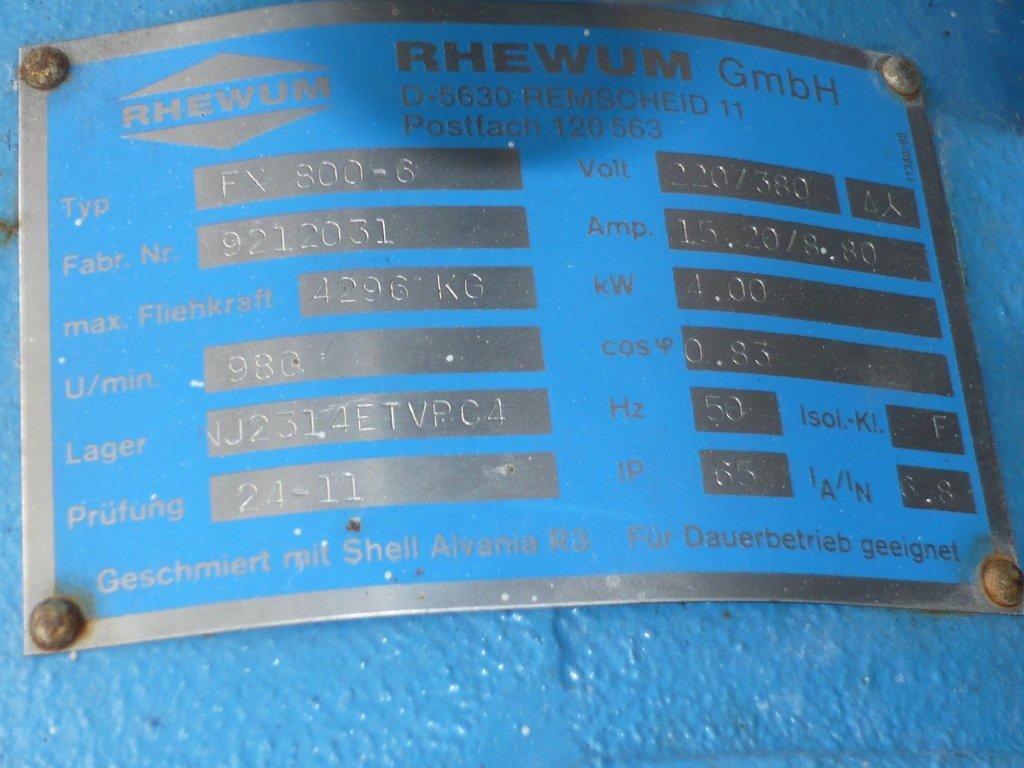 RHEWUM
RHEWUM GmbH
D-5630 REMSCHEID 11
Postfach 120 563
Typ FX 800-6
Fabr. Nr. 9212031
max. Fliehkraft 4296 KG
U/min. 980
Lager NJ2314ETVPC4
Prüfung 24-11
Volt 220/380 Δ人
Amp. 15.20/8.80
kW 4.00
cos φ 0.83
Hz 50 Isol.-Kl. F
IP 65 IA/IN 6.8
Geschmiert mit Shell Alvania R3 Für Dauerbetrieb geeignet